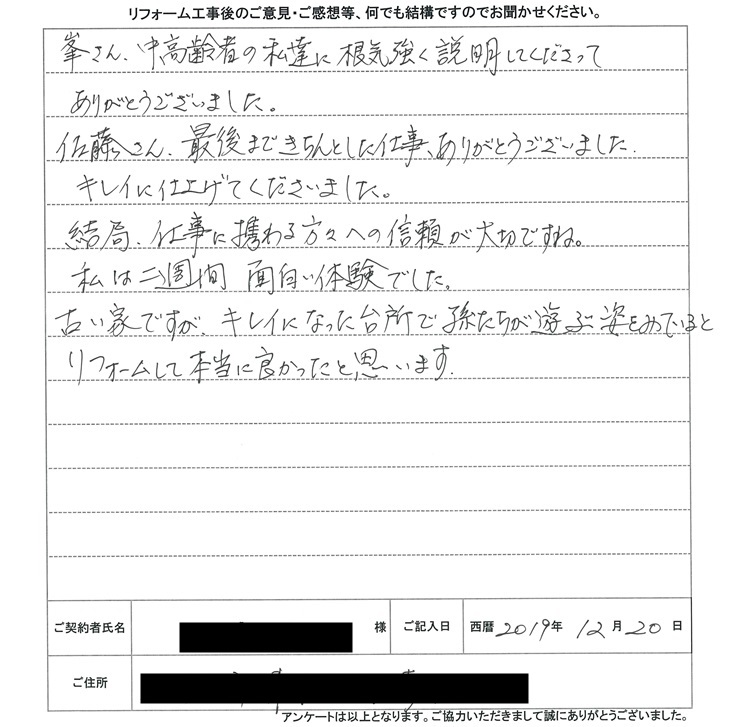 リフォーム工事後のご意見・ご感想等、何でも結構ですのでお聞かせください。
峯さん、中高齢者の私達に根気強く説明してくださって
ありがとうございました。
佐藤さん、最後まできちんとした仕事、ありがとうございました.
キレイに仕上げてくださいました。
結局、仕事に携わる方々への信頼が大切ですね。
私は二週間 面白い体験でした。
古い家ですが、キレイになった台所で孫たちが遊ぶ姿をみていると
リフォームして本当に良かったと思います.
ご契約者氏名 様 ご記入日 西暦 2019年 12月 20日
ご住所
アンケートは以上となります。ご協力いただきまして誠にありがとうございました。